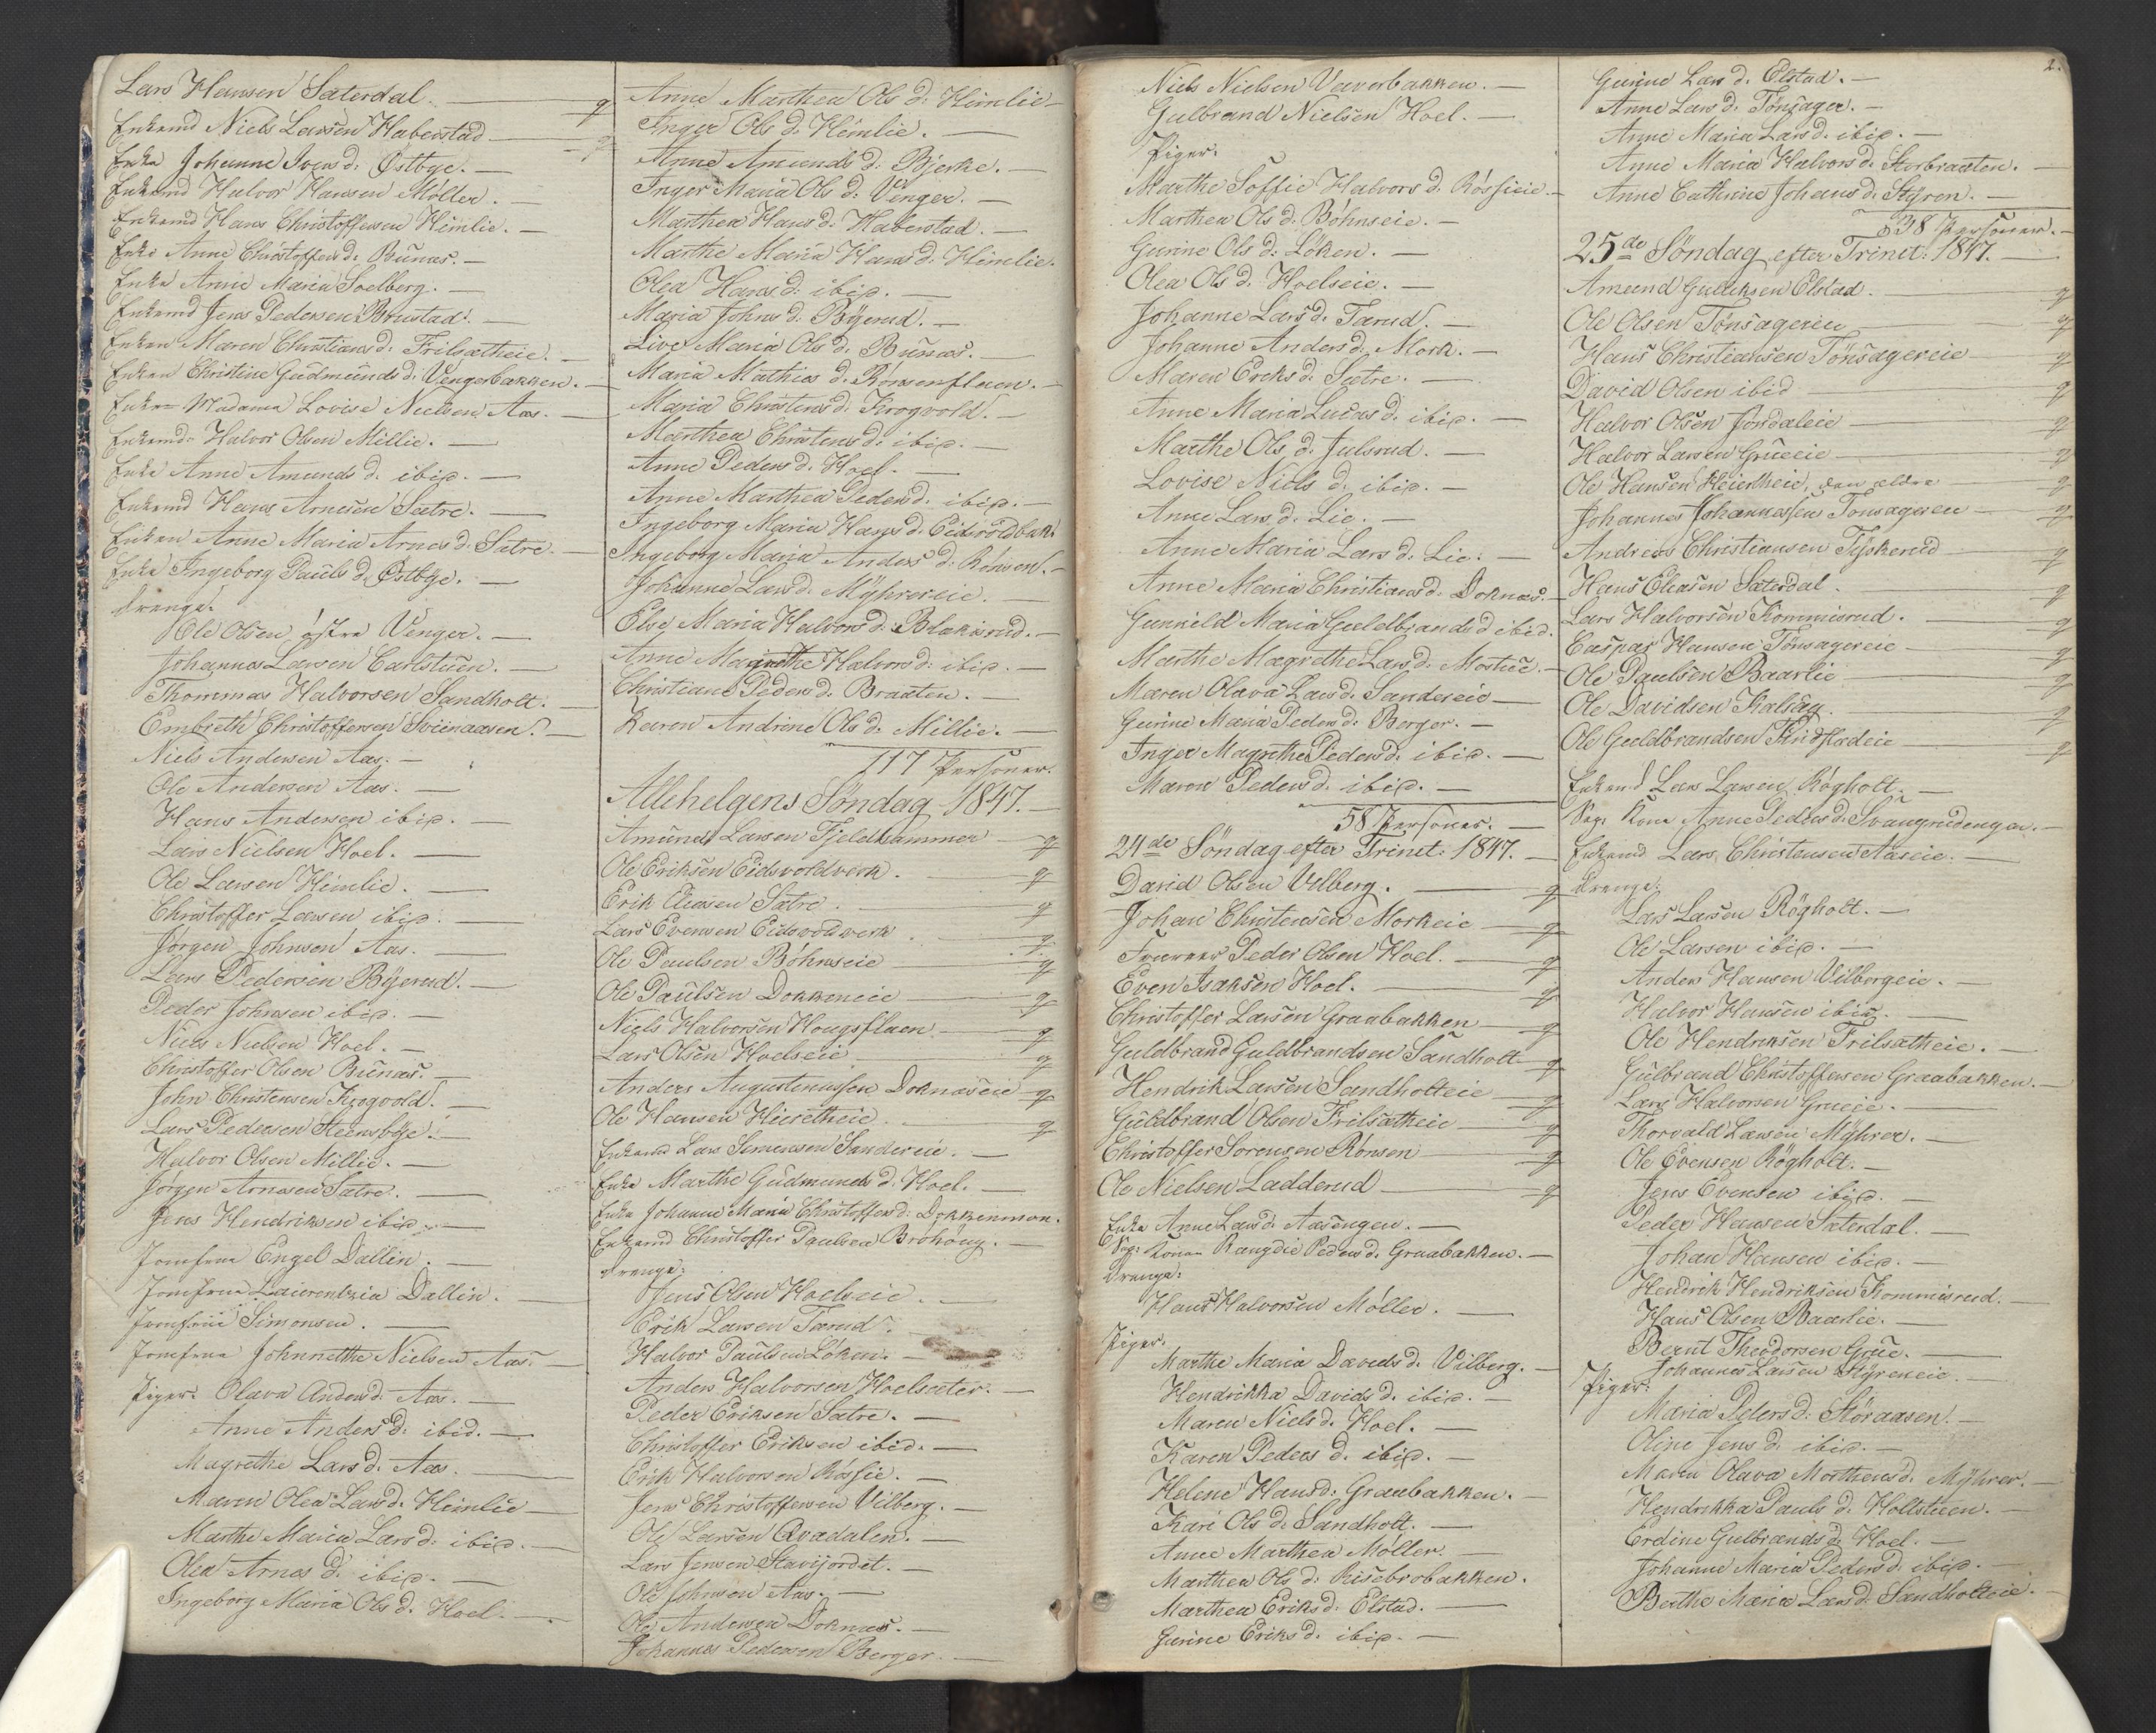 Lars Hansen Sæterdal. — g
Enkemd Niels Larsen Haberstad — g
Enke Johanne Ivers d. Østbye. —
Enkemd Halvor Hansen Møller. —
Enkemd Hans Christoffersen Himlie. —
Enke Anne Christoffers d. Bunæs. —
Enke Anne Maria Soelberg. —
Enkemd Jens Pedersen Brustad. —
Enken Maren Christians d. Frilsætheie. —
Enken Christine Gudmunds d. Vengerbakken. —
Enke Madama Lovise Nielsen Aas. —
Enkemd Halvor Olsen Millie. —
Enke Anne Amunds d. ibid. —
Enkemd Hans Arnesen Sætre. —
Enken Anne Maria Arnes d. Sætre. —
Enke Ingeborg Pauls d. Østbye. —
Drenge.
Ole Olsen østre Venger. —
Johannes Larsen Carlstuen. —
Thommas Halvorsen Sandholt. —
Embreth Christoffersen Svenaasen. —
Niels Andersen Aas. —
Ole Andersen Aas. —
Hans Andersen ibid. —
Lars Nielsen Hoel. —
Ole Larsen Himlie. —
Christoffer Larsen ibid. —
Jørgen Johnsen Aas. —
Lars Pedersen Byerud. —
Peder Johnsen ibid. —
Niels Nielsen Hoel. —
Christoffer Olsen Bunæs. —
John Christensen Krogvold. —
Lars Pedersen Steensbye. —
Halvor Olsen Millie. —
Jørgen Arnesen Sætre. —
Jens Hendriksen ibid. —
Jomfrue Engel Dallin. —
Jomfrue Laurentzia Dallin. —
Jomfrue Simonsen. —
Jomfrue Johnnethe Nielsen Aas. —
Piger. Olava Anders d. Aas. —
Anne Anders d. ibid. —
Magrethe Lars d. Aas. —
Maren Olea Lars d. Himlie —
Marthe Maria Lars d. ibid. —
Olea Arnes d. ibid. —
Ingeborg Maria Ols d. Hoel. —
Anne Marthea Ols d. Himlie —
Inger Ols d. Himlie. —
Anne Amunds d. Bjerke. —
Inger Maria Ols d. Venger. —
Marthea Hans d. Haberstad. —
Marthe Maria Hans d. Himlie.
Olea Hans d. ibid. —
Maria Johns d. Byerud. —
Live Maria Ols d. Bunæs. —
Maria Mathias d. Rønsenflaen. —
Maria Christens d. Krogvold. —
Marthea Christens d. ibid. —
Anne Peders d. Hoel. —
Anne Marthea Peders d. ibid. —
Ingeborg Maria Hans d. Eidsvoldbak.
Ingeborg Maria Anders d. Rønsen. —
Johanne Lars d. Myhrereie. —
Else Maria Halvors d. Blakisrud. —
Anne Magrethe Halvors d. ibid. —
Christiane Peders d. Braaten. —
Karen Andrine Ols d. Millie. —
117 Personer.
Allehelgens Søndag 1847. —
Amund Larsen Fjeldhammer — g
Ole Eriksen Eidsvoldverk. — g
Erik Eliasen Sætre. — g
Lars Evensen Eidsvoldverk — g
Ole Paulsen Bøhnseie — g
Ole Paulsen Dokkeneie — g
Niels Halvorsen Hougsflaen — g
Lars Olsen Hoelseie — g
Anders Augustenussen Doknæseie — g
Ole Hansen Hieretheie — g
Enkemd Lars Simensen Sandereie. —
Enke Marthe Gudmunds d. Hoel. —
Enke Johanne Maria Christoffers d. Dokkenmoen.
Enkemd Christoffer Paulsen Brøhoug. —
Drenge:
Jens Olsen Hoelseie. —
Erik Larsen Tærud. —
Halvor Paulsen Løken. —
Anders Halvorsen Hoelsæter. —
Peder Eriksen Sætre. —
Christoffer Eriksen ibid. —
Erik Halvorsen Røssie. —
Jens Christoffersen Vilberg. —
Ole Larsen Qvadalen. —
Lars Jensen Stavijordet. —
Ole Johnsen Aas. —
Ole Andersen Doknæs. —
Johannes Pedersen Berger. —
Niels Nielsen Væverbakken. —
Gulbrand Nielsen Hoel. —
Piger.
Marthe Soffie Halvors d. Røssieie. —
Marthea Ols d. Bøhnseie. —
Gurine Ols d. Løken. —
Olea Ols d. Hoelseie. —
Johanne Lars d. Tærud. —
Johanne Anders d. Mork. —
Maren Eriks d. Sætre. —
Anne Maria Lucas d. ibid. —
Marthe Ols d. Julsrud. —
Lovise Niels d. ibid. —
Anne Lars d. Lie. —
Anne Maria Lars d. Lie. —
Anne Maria Christians d. Doknæs. —
Gunnild Maria Guldbrands d ibid.
Marthe Magrethe Lars d. Mostue. —
Maren Olava Lars d. Sandereie —
Gurine Maria Peders d. Berger. —
Inger Magrethe Peders d. ibid. —
Maren Peders d. ibid. —
58 Personer. —
24de Søndag efter Trinit: 1847. —
David Olsen Vilberg. — g
Johan Christensen Morkeie — g
Peder Olsen Hoel. — g
Even Isaksen Hoel. — g
Christoffer Larsen Graabakken — g
Guldbrand Guldbrandsen Sandholt — g
Hendrik Larsen Sandholteie — g
Guldbrand Olsen Frilsætheie — g
Christoffer Sørensen Rønsen — g
Ole Nielsen Ladderud — g
Enke Anne Lars d. Aasengen. —
Sep: Konen Rangdie Peders d. Graabakken. —
Drenge:
Hans Halvorsen Møller. —
Piger.
Marthe Maria Davids d. Vilberg. —
Hendrikka Davids d. ibid. —
Maren Niels d. Hoel. —
Karen Peders d. ibid. —
Helene Hans d. Graabakken. —
Kari Ols d. Sandholt. —
Anne Marthea Møller. —
Marthea Ols d. Risebrobakken.
Marthea Eriks d. Elstad. —
Gurine Eriks d. ibid. —
2.
Gurine Lars d. Elstad. —
Anne Lars d. Tønsager. —
Anne Maria Lars d. ibid. —
Anne Maria Halvors d. Storbraaten. —
Anne Cathrine Johans d. Styren. —
38 Personer. —
25de Søndag efter Trinit: 1847. —
Amund Gulliksen Elstad. — g
Ole Olsen Tønsagereie — g
Hans Christiansen Tønsagereie — g
David Olsen ibid — g
Halvor Olsen Jøndaleie — g
Halvor Larsen Grueeie — g
Ole Hansen Heieretheie, den ældre — g
Johannes Johannessen Tønsagereie — g
Andreas Christiansen Tyskerud — g
Hans Eliasen Sæterdal. — g
Lars Halvorsen Kommisrud. — g
Caspar Hansen Tønsagereie — g
Ole Paulsen Baarlie — g
Ole Davidsen Kalsæg. — g
Ole Guldbrandsen Findsfladeie — g
Enkemd Lars Larsen Røgholt. —
Sep: Kone Anne Peders d. Svangrudengen. —
Enkemd Lars Christensen Aaseie. —
Drenge.
Lars Larsen Røgholt. —
Ole Larsen ibid. —
Anders Hansen Vilbergeie. —
Halvor Hansen ibid. —
Ole Hendriksen Frilsætheie. —
Gulbrand Christoffersen Graabakken. —
Lars Halvorsen Grueeie. —
Thorvald Larsen Myhrer. —
Ole Evensen Røgholt. —
Jens Evensen ibid. —
Peder Hansen Sæterdal. —
Johan Hansen ibid. —
Hendrik Hendriksen Kommisrud. —
Hans Olsen Baarlie. —
Bernt Theodorsen Grue. —
Johannes Larsen Styreneie. —
Piger:
Maria Peders d. Støraasen. —
Oline Jens d. ibid. —
Maren Olava Morthens d. Myhrer. —
Hendrikka Pauls d. Hollstuen. —
Erdine Gulbrands d. Hoel. —
Johanne Maria Peders d. ibid. —
Berthe Maria Lars d. Sandholteie. —